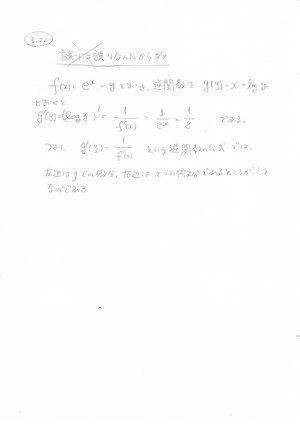 3.22
誤りは誤りなんだからダメ
f(x) = e^x = y とおき、逆関数を g(y) = x = log y
とおくと、
g'(y) = (log y)' = 1/f'(x) = 1/e^x = 1/y である。
つまり g'(y) = 1/f'(x) という逆関数の公式では、
左辺は y での微分、右辺は x での微分であるところがミソ
なのである